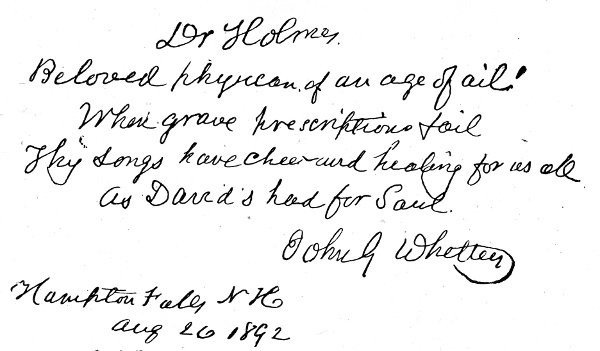 Dr Holmes.
Beloved physican of an age of ail!
When grave prescriptions fail
Thy songs have cheer and healing for us all
As David's had for Saul.
John G Whittier
Hampton Falls N H
Aug 26 1892